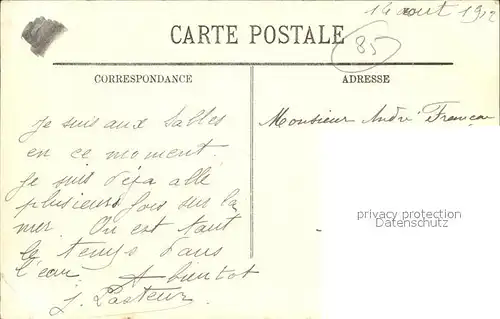 14 aout 1912
CARTE POSTALE
85
CORRESPONDANCE
ADRESSE
Je suis aux Sables
en ce moment.
Je suis déja allé
plusieurs fois sur la
mer. On est tout
le temps dans
l'eau. A bientot
J. Pasteur.
Monsieur André Françau
privacy protection
Datenschutz